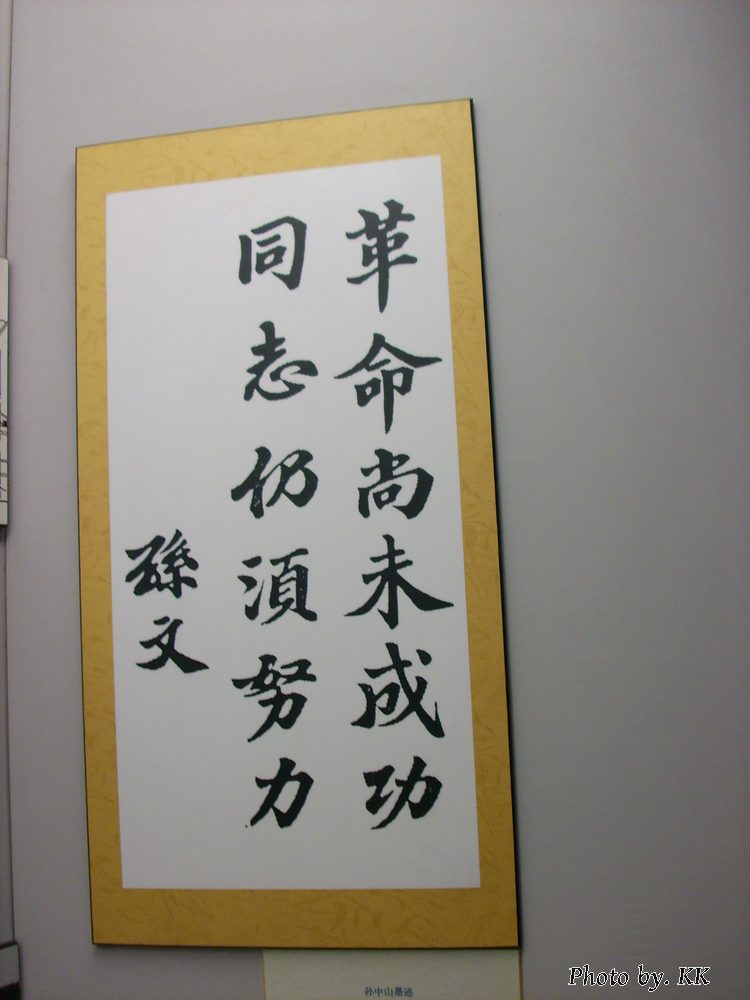 革命尚未成功
同志仍湏努力
孫文
孙中山墨迹
Photo by. KK